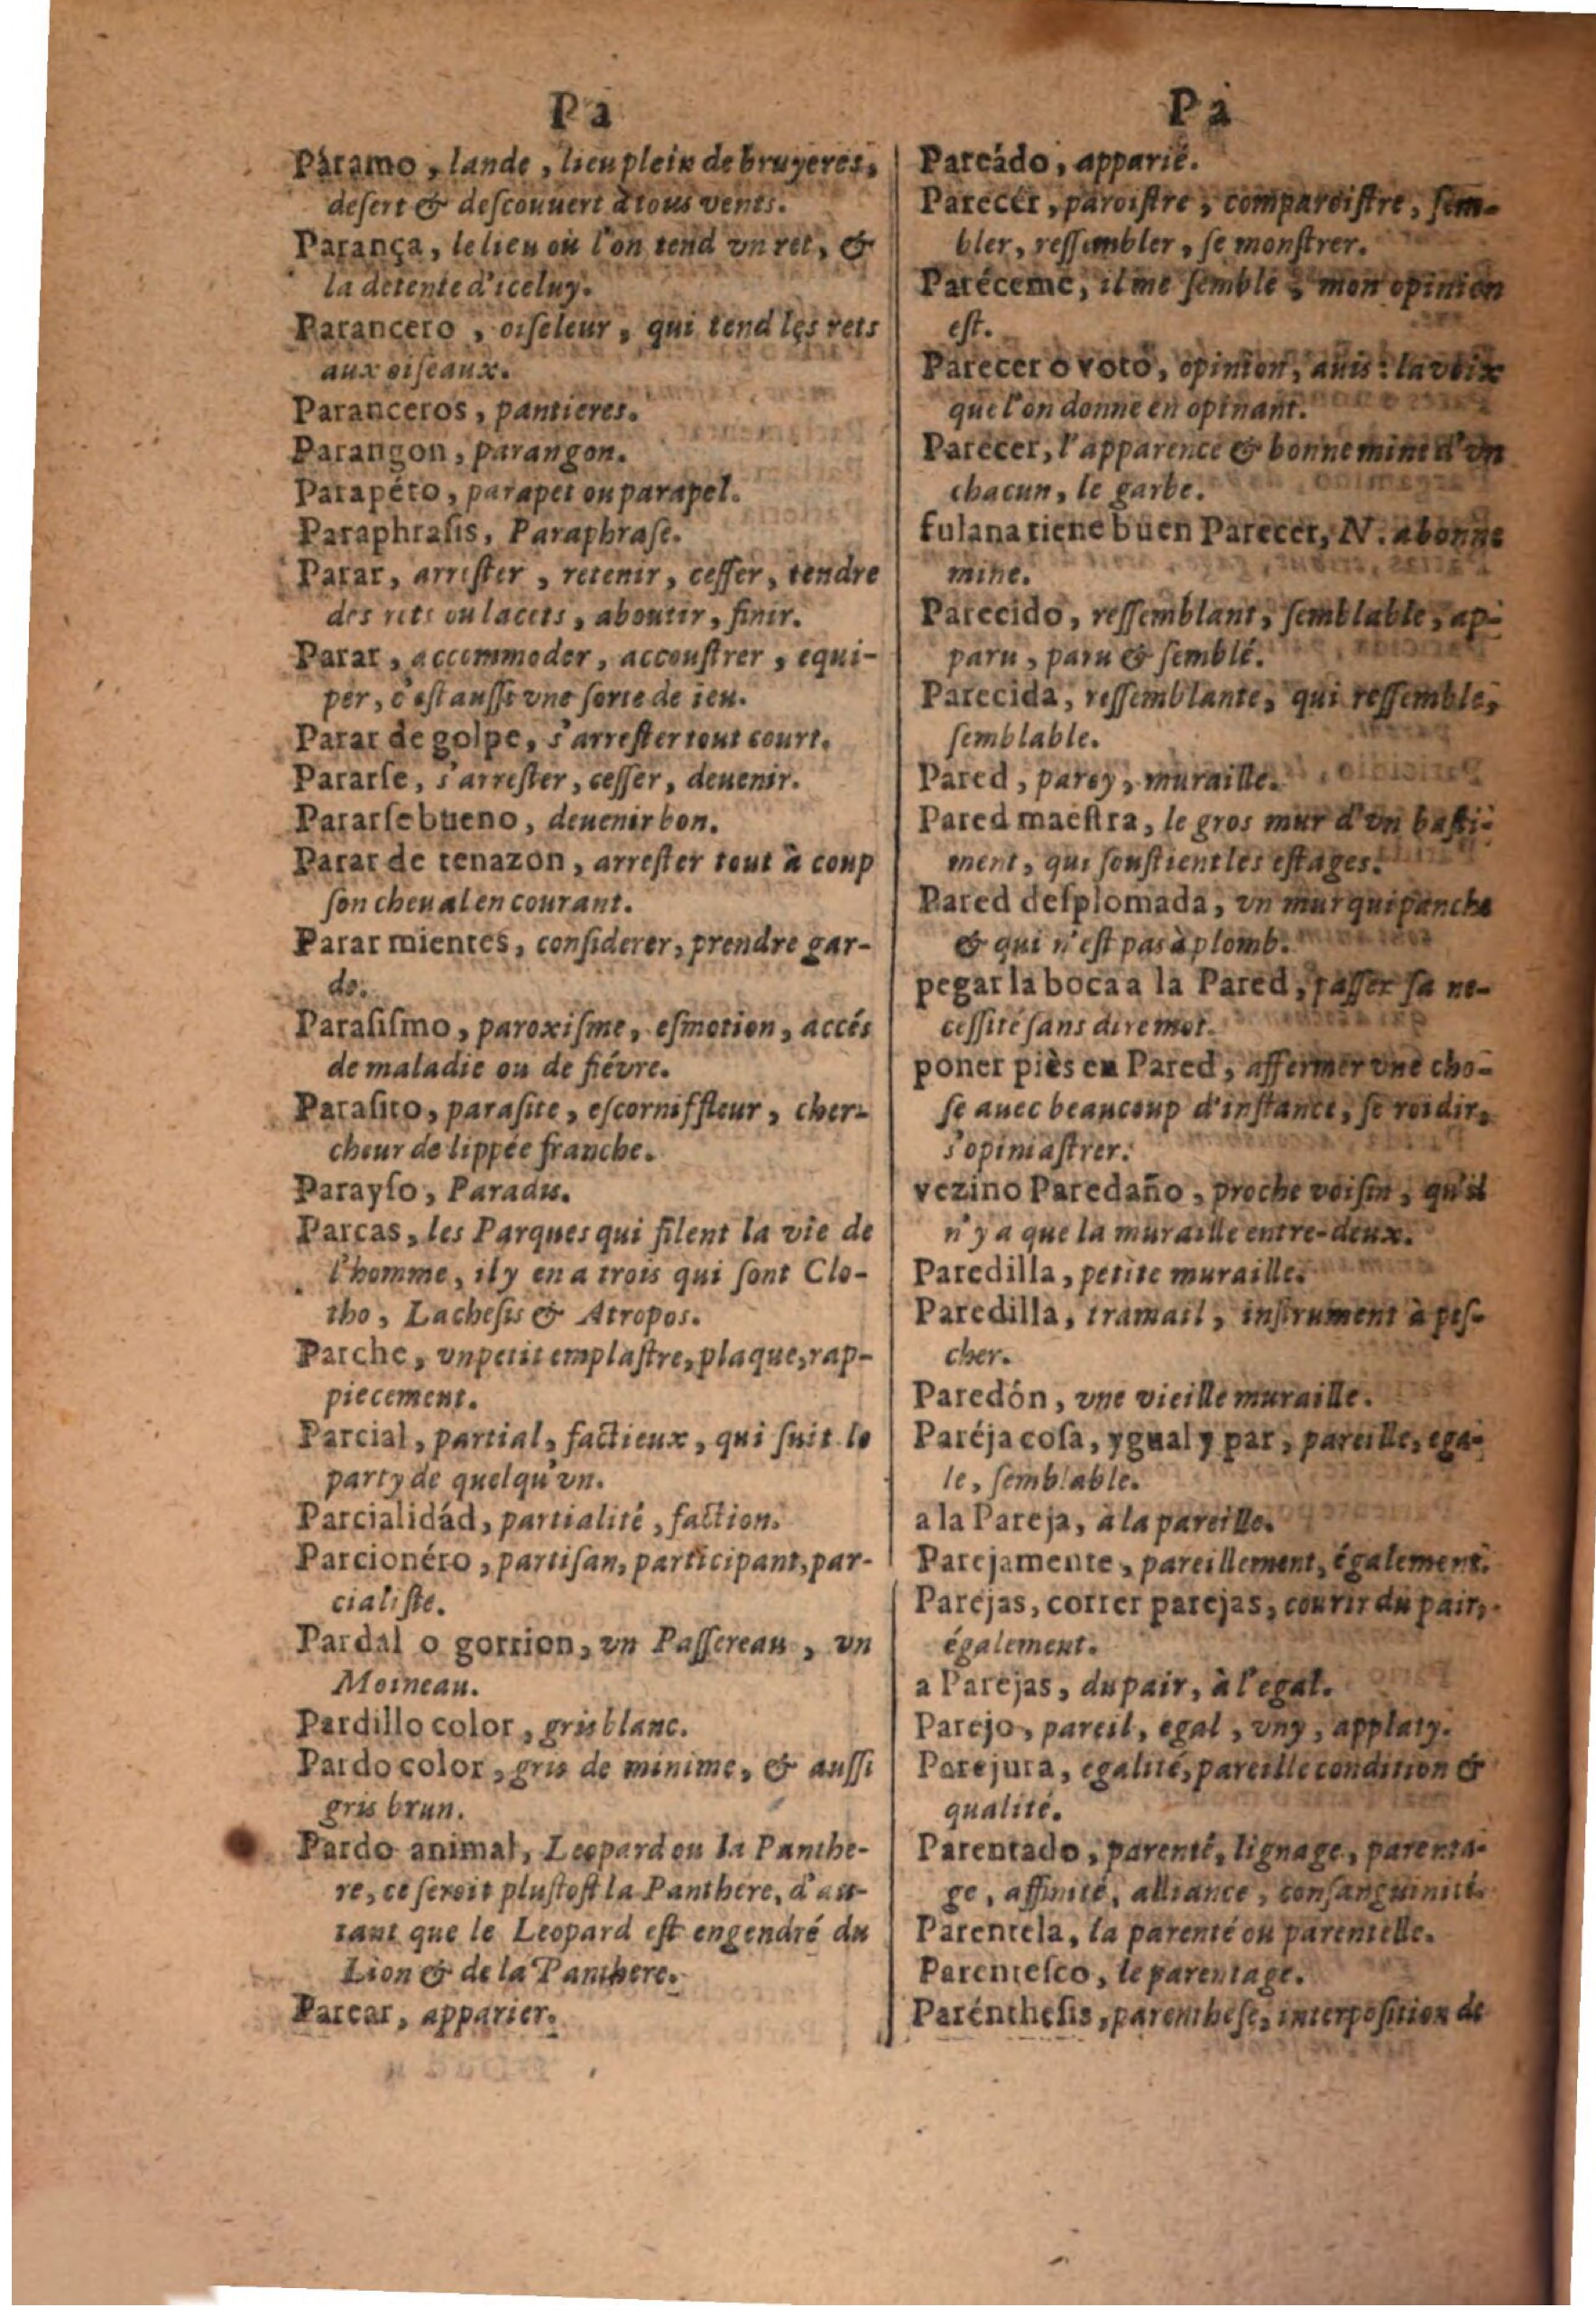 Pa
Páramo, lande, lieu plein de bruyeres,
desert & descouuert à tous vents.
Parança, le lieu où l'on tend vn ret, &
la detente d'iceluy.
Parancero, oiseleur, qui tend les rets
aux oiseaux.
Paranceros, pantieres.
Parangon, parangon.
Parapéto, parapet ou parapel.
Paraphrasis, Paraphrase.
Parar, arrester, retenir, cesser, tendre
des rets ou lacets, aboutir, finir.
Parar, accommoder, accoustrer, equi-
per, c'est aussi vne sorte de ieu.
Parar de golpe, s'arrester tout court.
Pararse, s'arrester, cesser, deuenir.
Pararse bueno, deuenir bon.
Parar de tenazon, arrester tout à coup
son cheual en courant.
Parar mientes, considerer, prendre gar-
de.
Parasismo, paroxisme, esmotion, accés
de maladie ou de fiévre.
Parasito, parasite, escorniffleur, cher-
cheur de lippée franche.
Parayso, Paradis.
Parcas, les Parques qui filent la vie de
l'homme, il y en a trois qui sont Clo-
tho, Lachesis & Atropos.
Parche, vn petit emplastre, plaque, rap-
piecement.
Parcial, partial, factieux, qui suit le
party de quelqu'vn.
Parcialidád, partialité, faction.
Parcionéro, partisan, participant, par-
cialiste.
Pardal o gorrion, vn Passereau, vn
Moineau.
Pardillo color, gris blanc.
Pardo color, gris de minime, & aussi
gris brun.
Pardo animal, Leopard ou la Panthe-
re, ce seroit plustost la Panthere, d'au-
tant que le Leopard est engendré du
Lion & de la Panthere.
Parear, apparier.
Pa
Pareádo, apparié.
Parecér, paroistre, comparoistre, sem-
bler, ressembler, se monstrer.
Paréceme, il me semble, mon opinion
est.
Parecer o voto, opinion, auis: la voix
que l'on donne en opinant.
Parecer, l'apparence & bonne mine d'vn
chacun, le garbe.
fulana tiene buen Parecer, N. a bonne
mine.
Parecido, ressemblant, semblable, ap-
paru, paru & semblé.
Parecida, ressemblante, qui ressemble,
semblable.
Pared, parey, muraille.
Pared maestra, le gros mur d'vn basti-
ment, qui soustient les estages.
Pared desplomada, vn mur qui panche
& qui n'est pas à plomb.
pegar la boca a la Pared, passer sa ne-
cessité sans dire mot.
poner piès en Pared, affermer vne cho-
se auec beaucoup d'instance, se roidir,
s'opiniastrer.
vezino Paredaño, proche voisin, qu'il
n'y a que la muraille entre-deux.
Paredilla, petite muraille.
Paredilla, tramail, instrument à pes-
cher.
Paredón, vne vieille muraille.
Paréja cosa, ygual y par, pareille, ega-
le, semblable.
a la Pareja, à la pareille.
Parejamente, pareillement, également.
Paréjas, correr parejas, courir du pair,
également.
a Paréjas, du pair, à l'egal.
Parejo, pareil, egal, vny, applaty.
Parejura, egalité, pareille condition &
qualité.
Parentado, parenté, lignage, parenta-
ge, affinité, alliance, consanguinité.
Parentela, la parenté ou parentelle.
Parentesco, le parentage.
Parénthesis, parenthese, interposition de